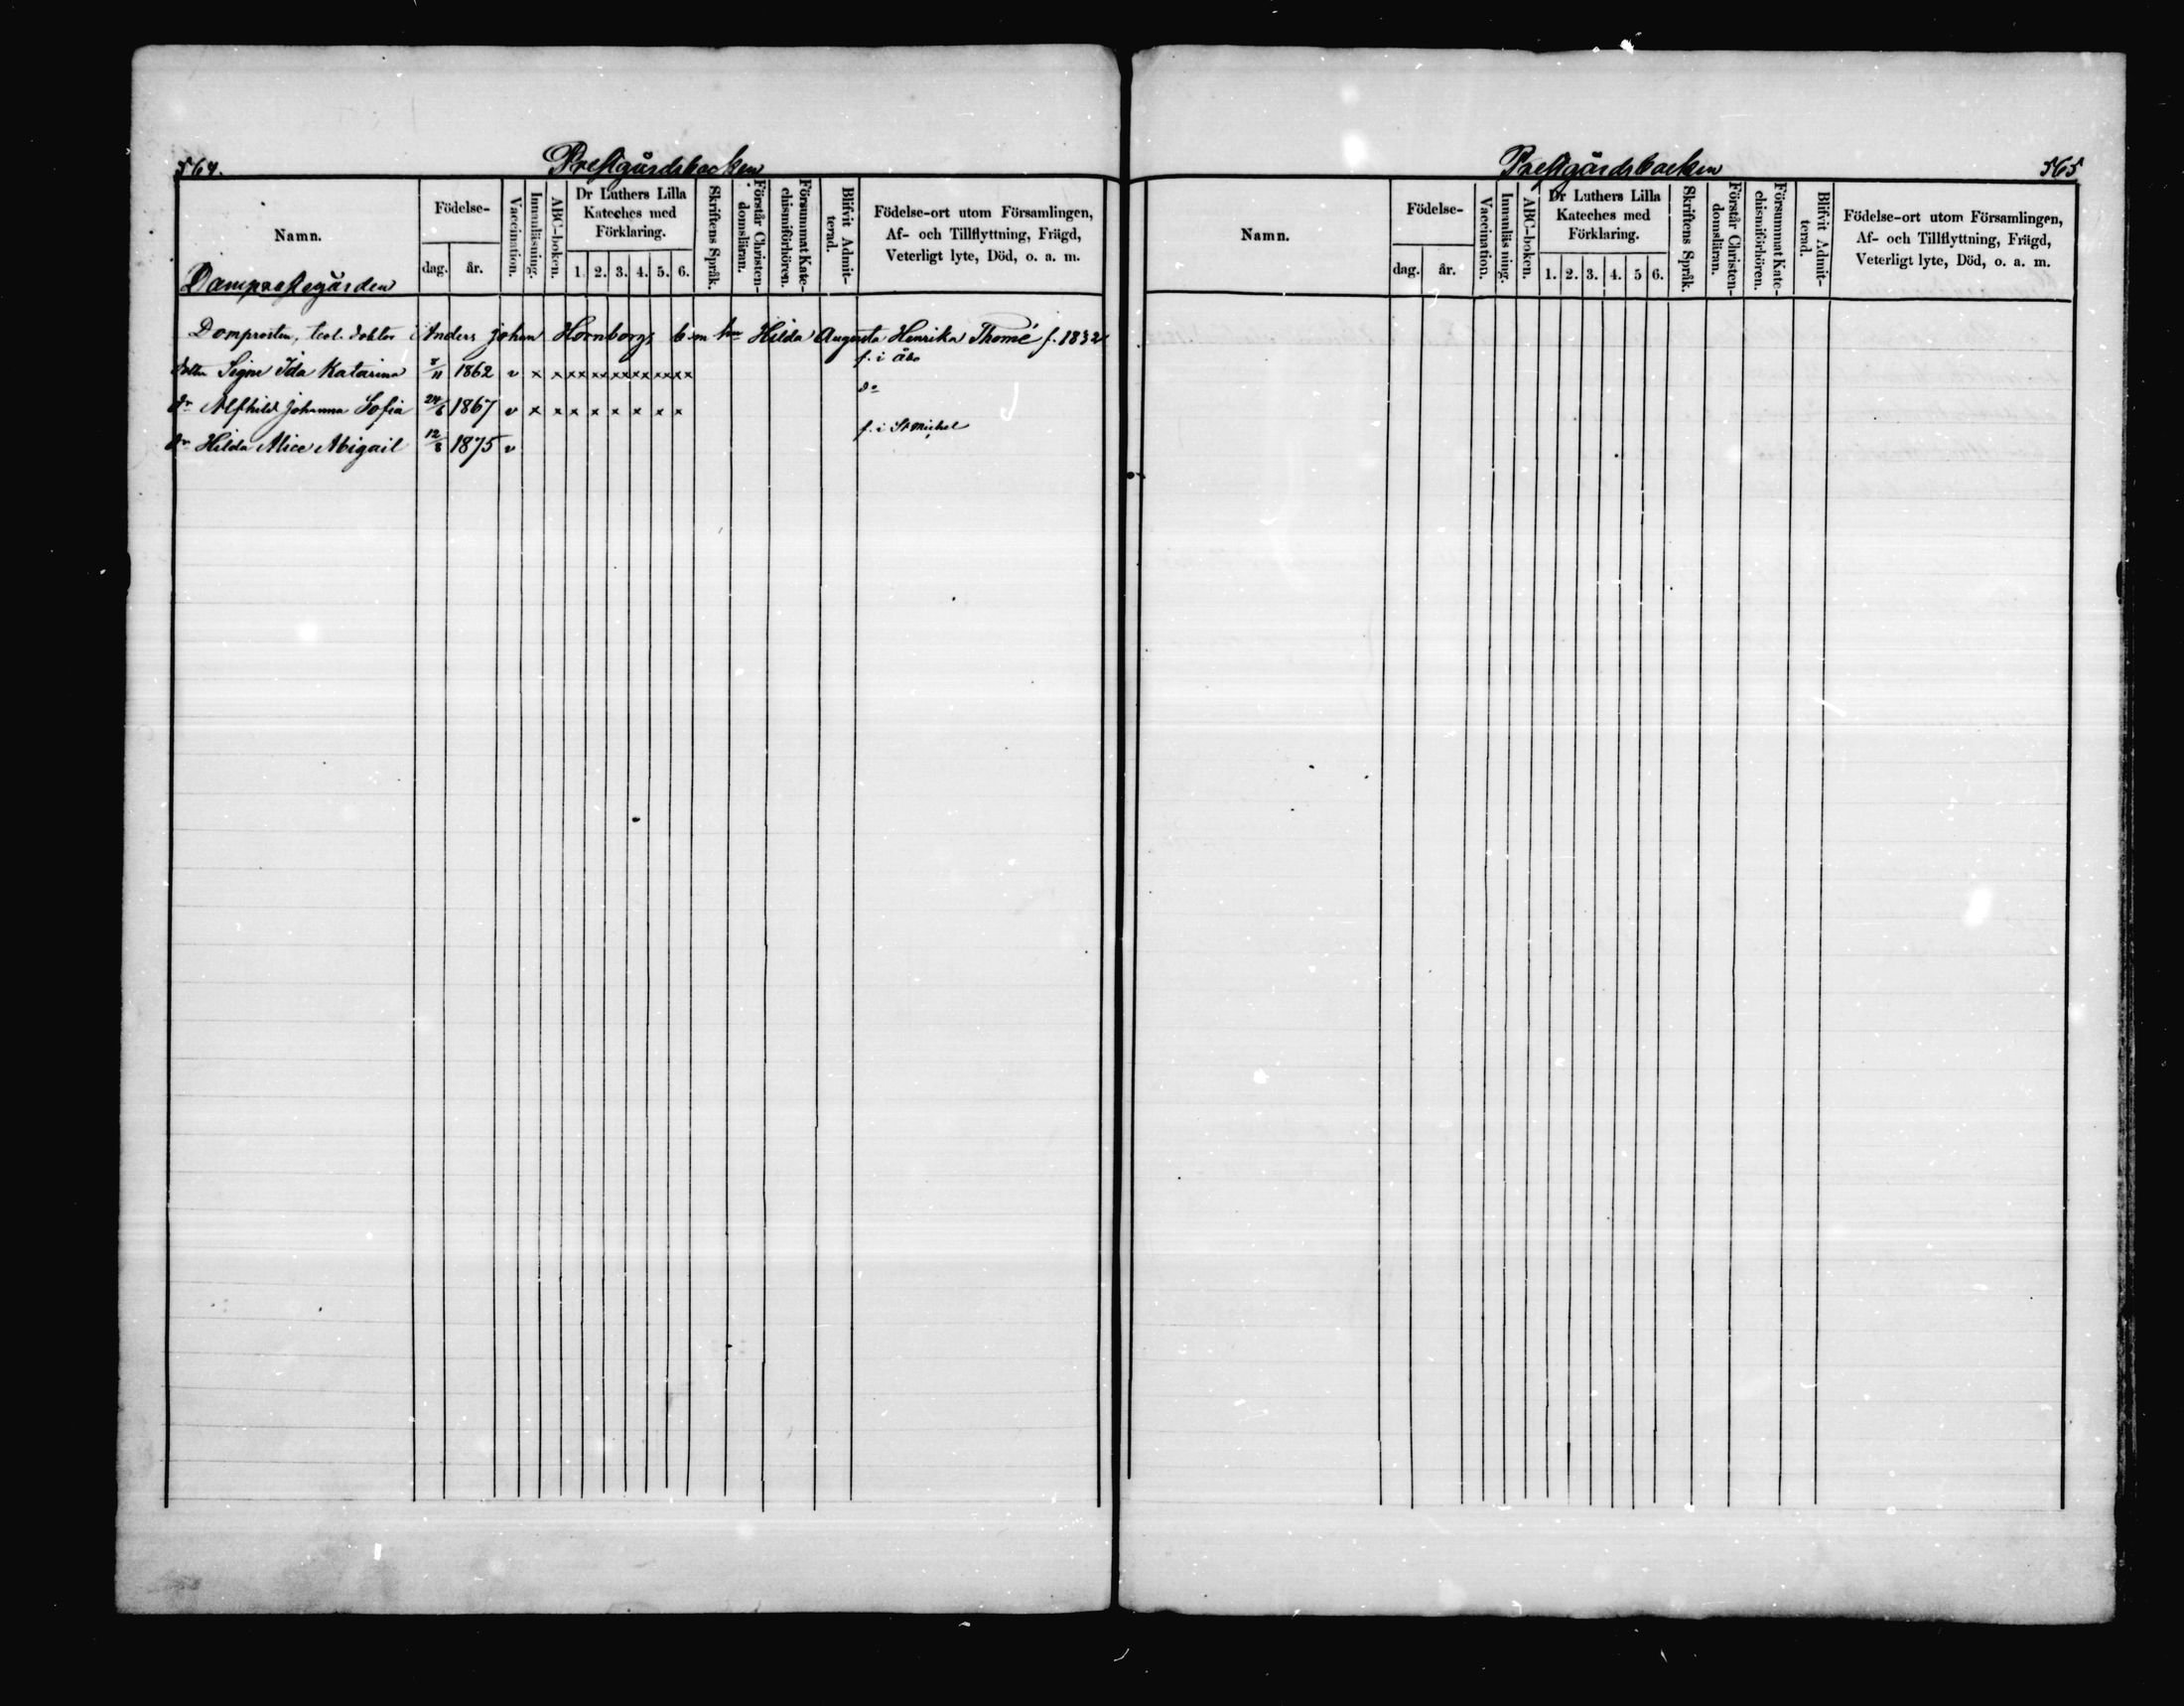 564.
Prestgårdsbacken
Namn.
Födelse-
dag.
år.
Vaccination.
Innanläsning.
ABC-boken.
Dr Luthers Lilla
Kateches med
Förklaring.
1. 2. 3. 4. 5. 6.
Skriftens Språk.
Förstår Christen-
domsläran.
Försummat Kate-
chismiförhören.
Blifvit Admit-
terad.
Födelse-ort utom Församlingen,
Af- och Tillflyttning, Frägd,
Veterligt lyte, Död, o. a. m.
Domprosten, teol. doktor Anders Johan Hornborgs b. m. Hilda Augusta Henrika Thomé f. 1832
dottr Signe Ida Katarina 1862 v x x xx xx xx xx xx xx f. i Åbo
dr Alfhild Johanna Sofia 24/6 1867 v x x x x x x x x do
dr Hilda Alice Abigail 1875 v f. i St Michel
Prestgårdsbacken
565
Namn.
Födelse-
dag.
år.
Vaccination.
Innanläsning.
ABC-boken.
Dr Luthers Lilla
Kateches med
Förklaring.
1. 2. 3. 4. 5 6.
Skriftens Språk.
Förstår Christen-
domsläran.
Försummat Kate-
chismiförhören.
Blifvit Admit-
terad.
Födelse-ort utom Församlingen,
Af- och Tillflyttning, Frägd,
Veterligt lyte, Död, o. a. m.